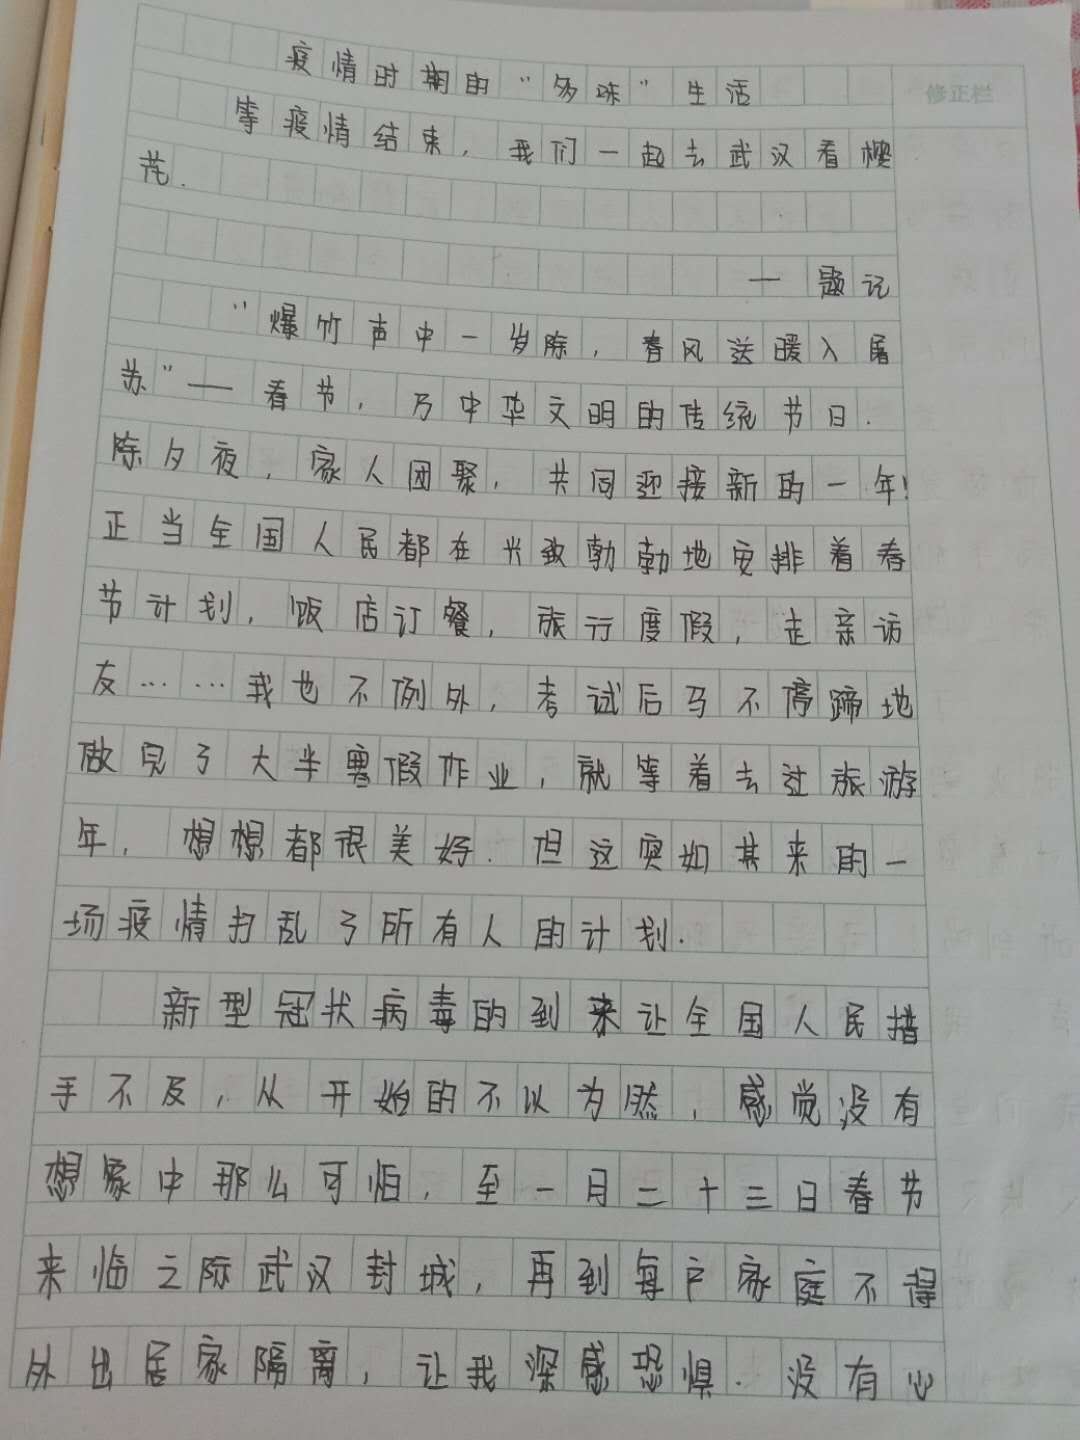 疫情时期的“多味”生活
修正栏
等疫情结束，我们一起去武汉看樱
花.
一题记
“爆竹声中一岁除，春风送暖入屠
苏”——春节，乃中华文明的传统节日.
除夕夜，家人团聚，共同迎接新的一年!
正当全国人民都在兴致勃勃地安排着春
节计划，饭店订餐，旅行度假，走亲访
友……我也不例外，考试后马不停蹄地
做完了大半寒假作业，就等着去过旅游
年，想想都很美好.但这突如其来的一
场疫情打乱了所有人的计划.
新型冠状病毒的到来让全国人民措
手不及，从开始的不以为然，感觉没有
想象中那么可怕，至一月二十三日春节
来临之际武汉封城，再到每户家庭不得
外出居家隔离，让我深感恐惧.没有心